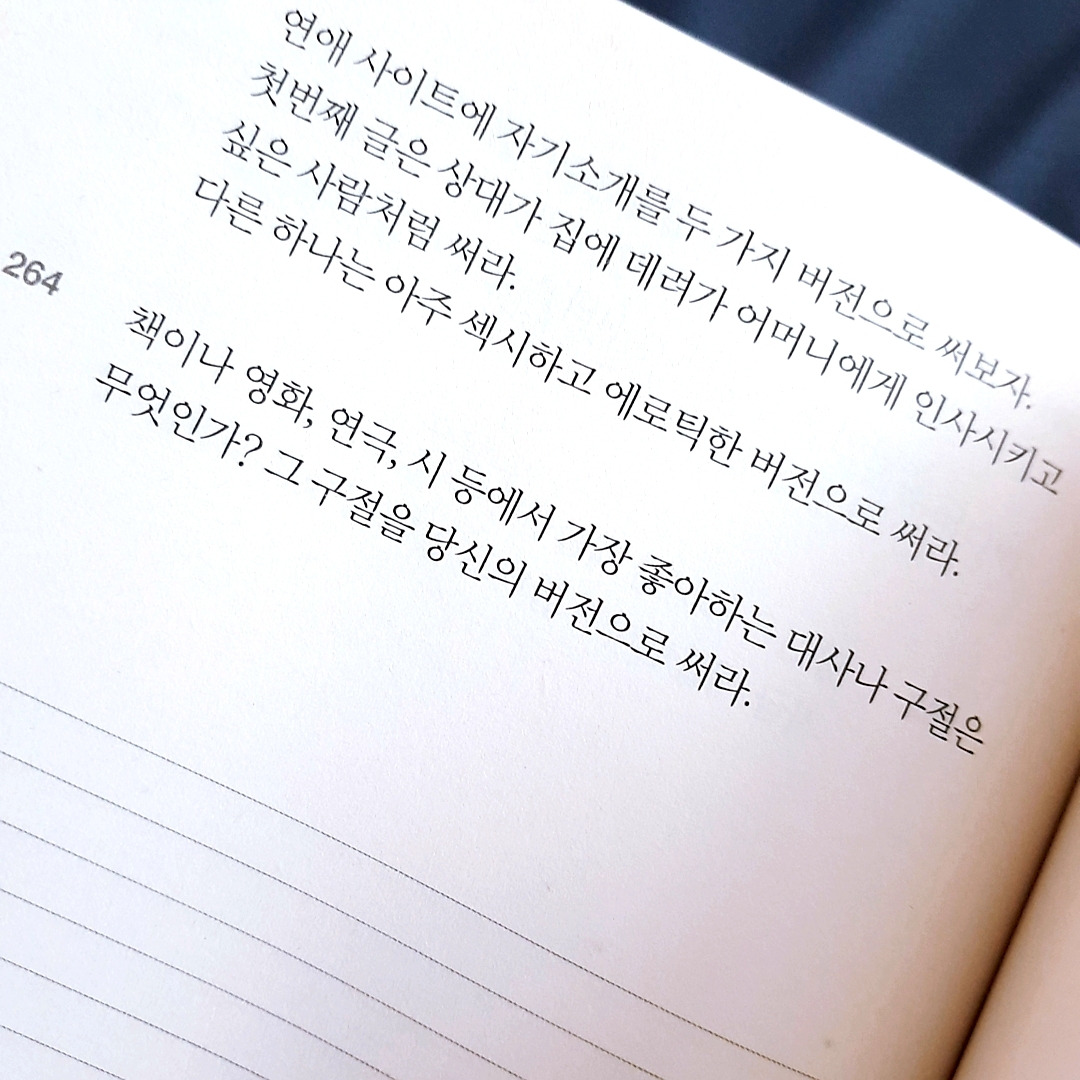 연애 사이트에 자기소개를 두 가지 버전으로 써보자.
첫번째 글은 상대가 집에 데려가 어머니에게 인사시키고
싶은 사람처럼 써라.
다른 하나는 아주 섹시하고 에로틱한 버전으로 써라.
264
책이나 영화, 연극, 시 등에서 가장 좋아하는 대사나 구절은
무엇인가? 그 구절을 당신의 버전으로 써라.